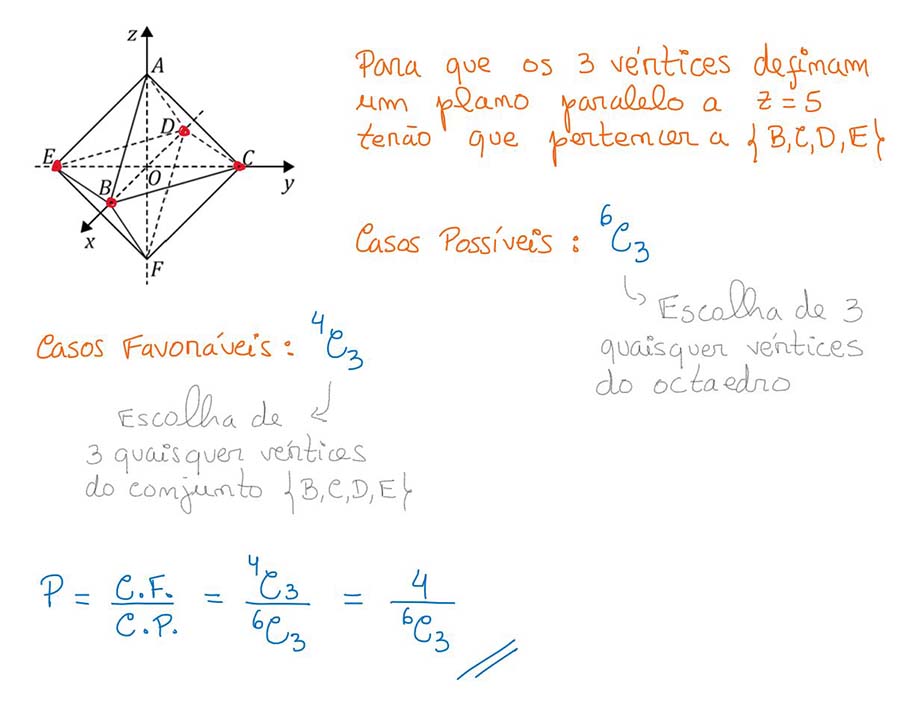 z
A
D
E
C
B
O
y
x
F
Para que os 3 vértices definam
um plano paralelo a z = 5
terão que pertencer a {B,C,D,E}
Casos Possíveis : ⁶C₃
Escolha de 3
quaisquer vértices
do octaedro
Casos Favoráveis : ⁴C₃
Escolha de
3 quaisquer vértices
do conjunto {B,C,D,E}
P = C.F./C.P. = ⁴C₃/⁶C₃ = 4/⁶C₃